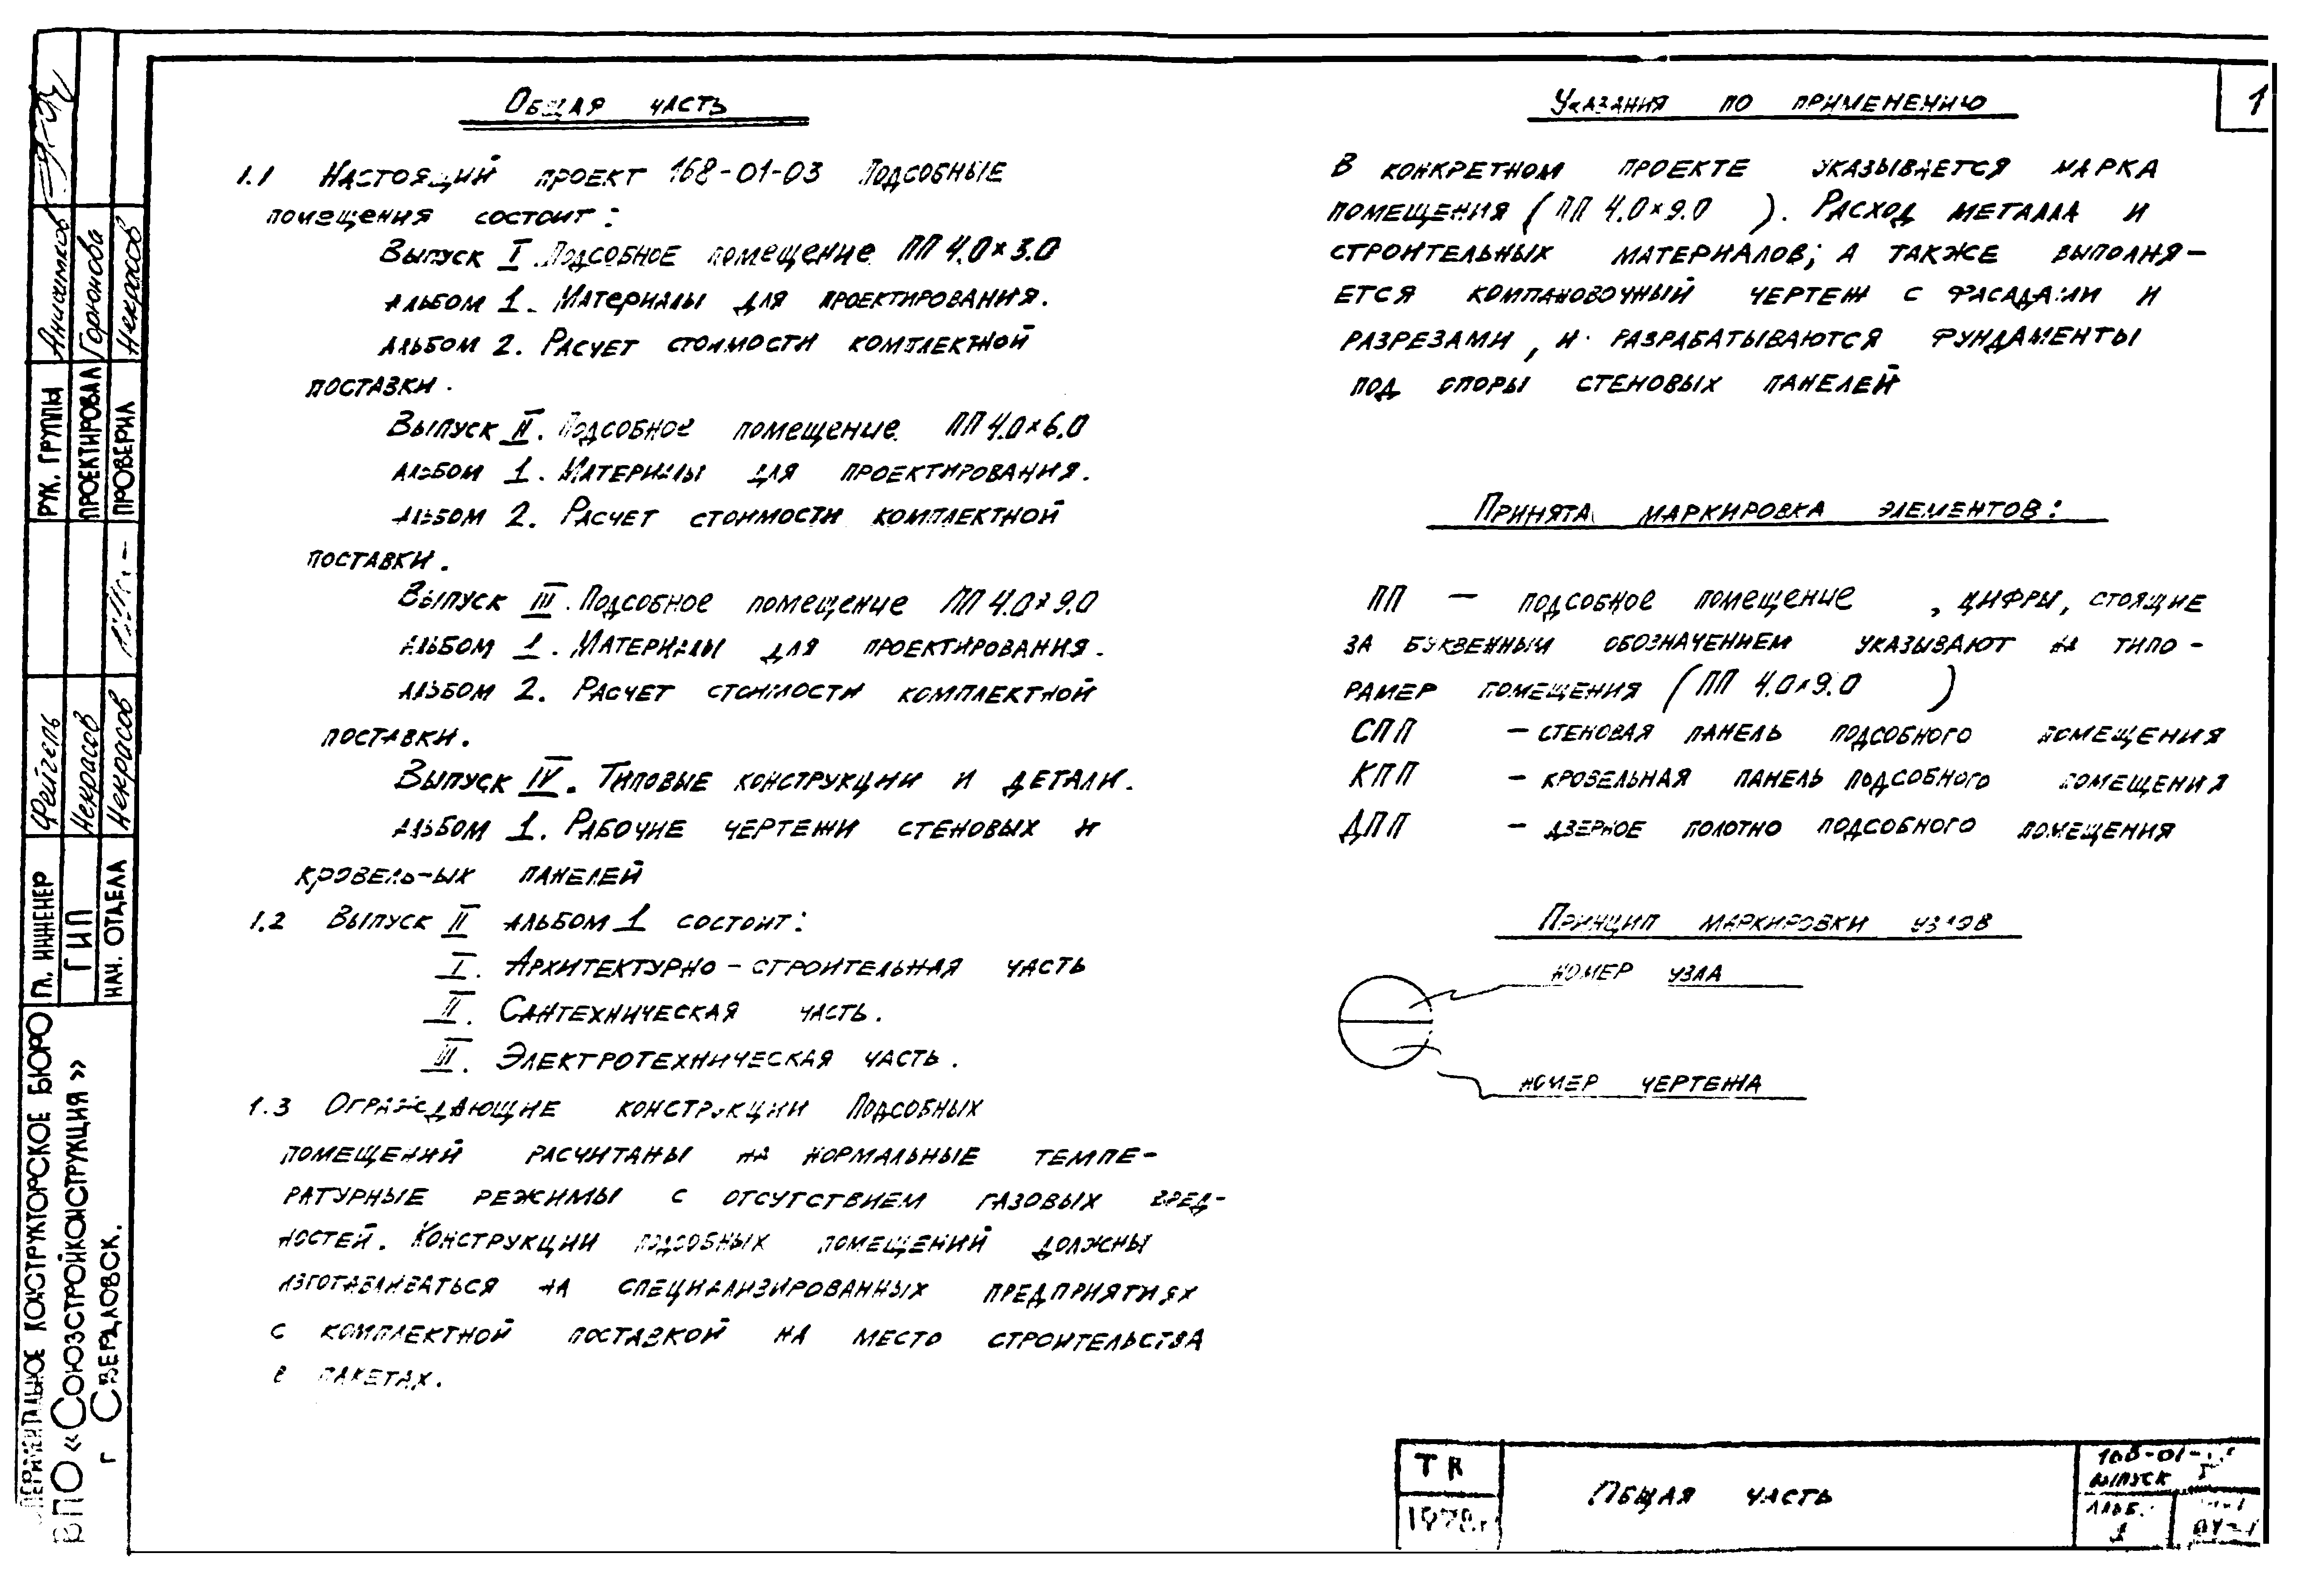 Общая часть
1.1 Настоящий проект 168-01-03 Подсобные
помещения состоит:
Выпуск I. Подсобное помещение ПП 4.0×3.0
Альбом 1. Материалы для проектирования.
Альбом 2. Расчет стоимости комплектной
поставки.
Выпуск II. Подсобное помещение ПП 4.0×6.0
Альбом 1. Материалы для проектирования.
Альбом 2. Расчет стоимости комплектной
поставки.
Выпуск III. Подсобное помещение ПП 4.0×9.0
Альбом 1. Материалы для проектирования.
Альбом 2. Расчет стоимости комплектной
поставки.
Выпуск IV. Типовые конструкции и детали.
Альбом 1. Рабочие чертежи стеновых и
кровельных панелей
1.2 Выпуск II альбом 1 состоит:
I. Архитектурно-строительная часть
II. Сантехническая часть.
III. Электротехническая часть.
1.3 Ограждающие конструкции Подсобных
помещений расчитаны на нормальные темпе-
ратурные режимы с отсутствием газовых вред-
ностей. Конструкции подсобных помещений должны
изготавливаться на специализированных предприятиях
с комплектной поставкой на место строительства
в пакетах.
Указания по применению
1
В конкретном проекте указывается марка
помещения (ПП 4.0×9.0 ). Расход металла и
строительных материалов; а также выполня-
ется компановочный чертеж с фасадами и
разрезами, и разрабатываются фундаменты
под опоры стеновых панелей
Принята маркировка элементов:
ПП — подсобное помещение , цифры, стоящие
за буквенным обозначением указывают на типо-
рамер помещения (ПП 4.0×9.0 )
СПП – стеновая панель подсобного помещения
КПП – кровельная панель подсобного помещения
ДПП – дверное полотно подсобного помещения
Принцип маркировки узлов
номер узла
номер чертежа
Рук. группы Анишков
Проектировал Горюнова
Проверил Некрасов
Гл. инженер Фейгель
ГИП Некрасов
Нач. отдела Некрасов
конструкторское бюро
ВПО «Союзстройконструкция»
г Свердловск.
ТК
1978г
Общая часть
168-01-
Выпуск
Альб.
1